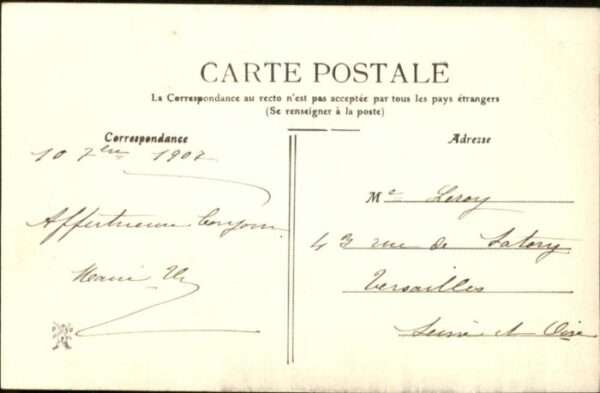 CARTE POSTALE
La Correspondance au recto n'est pas acceptée par tous les pays étrangers
(Se renseigner à la poste)
Correspondance
Adresse
10 7bre 1907
Affectueux bonjour
Marie
Me Leroy
43 rue de Satory
Versailles
Seine et Oise